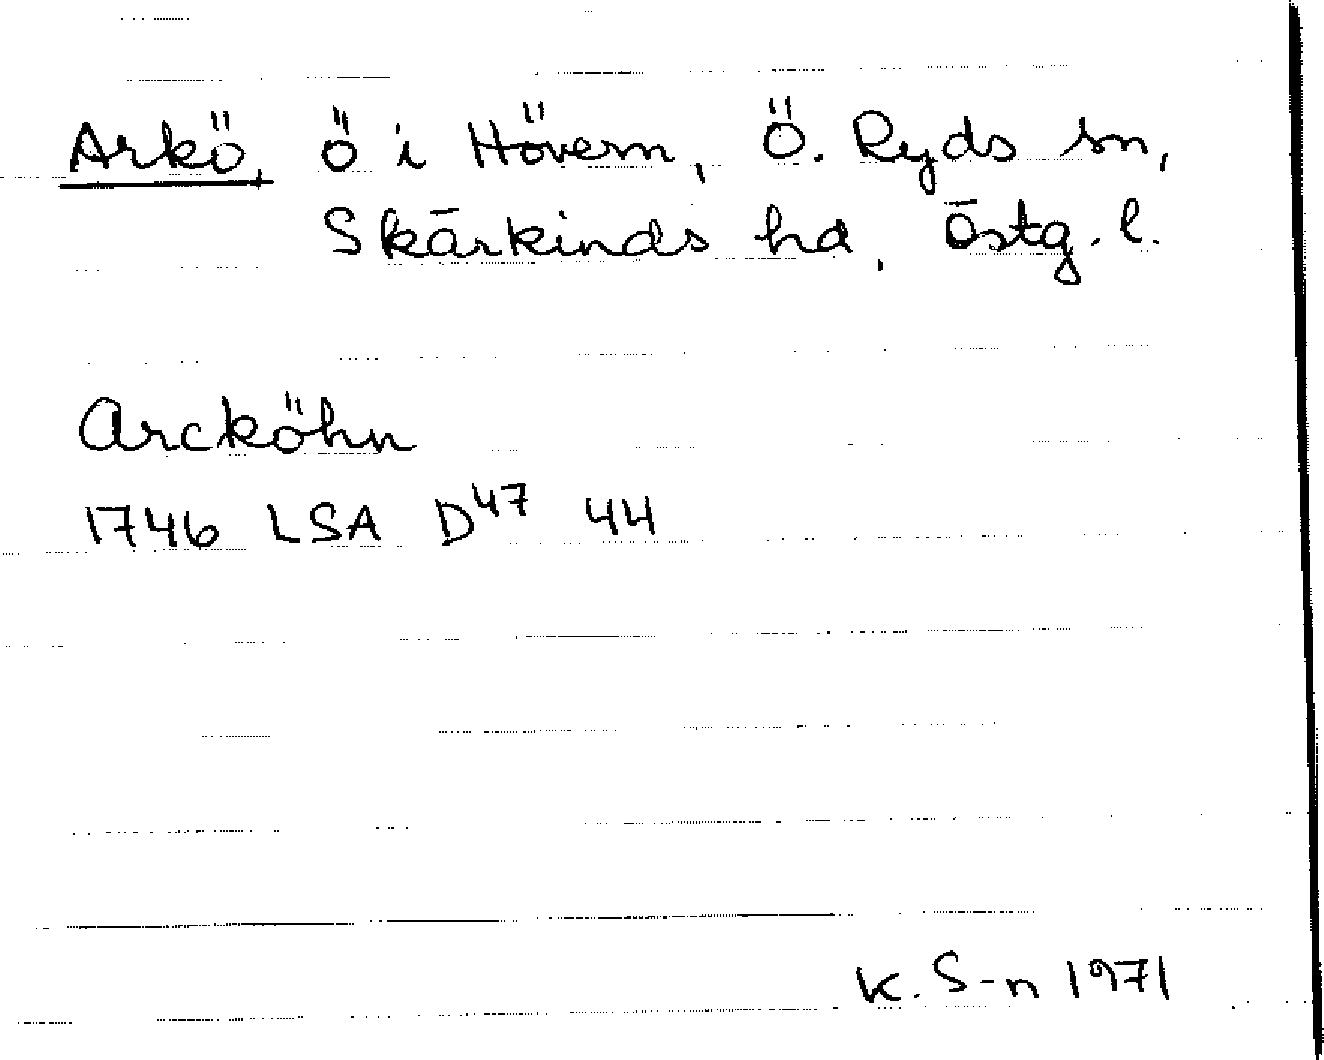 Arkö, ö i Hövern, Ö. Ryds sn,
Skärkinds hd, Östg. l.
Arcköhn
1746 LSA D47 44
K. S-n 1971